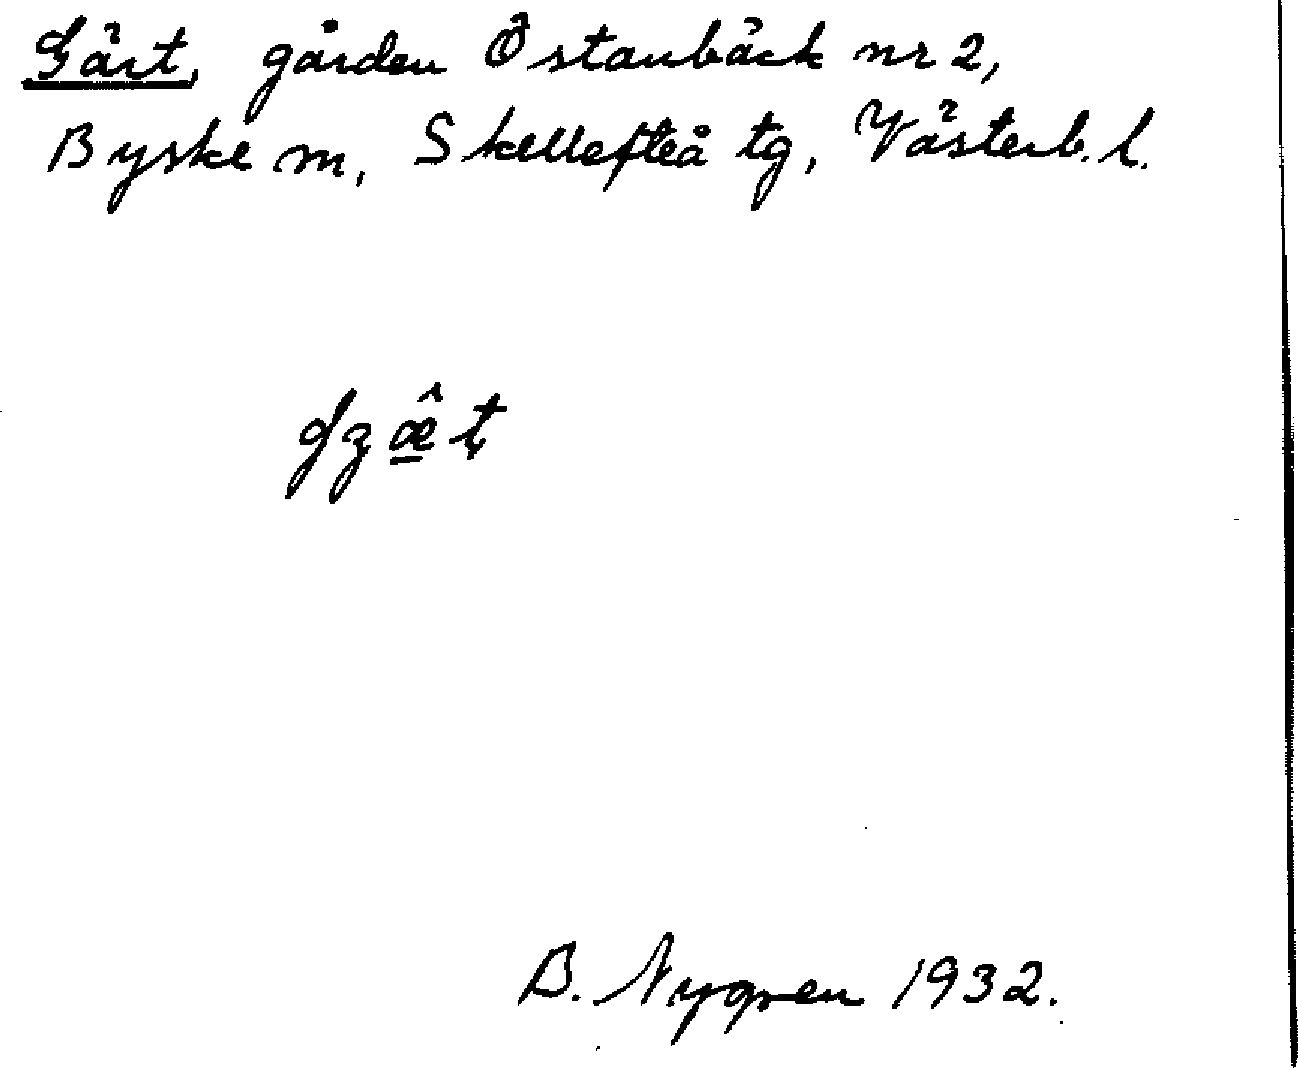 Gärt, gården Östanbäck nr 2,
Byske m, Skellefteå tg, Västerb. l.
B. Nygren 1932.